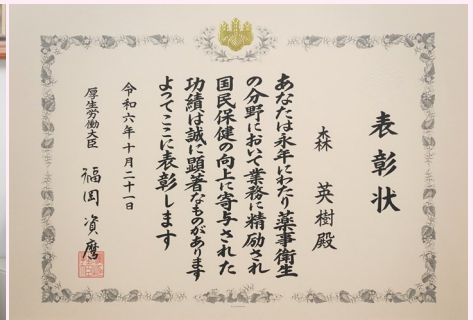 表彰状
森 英樹 殿
あなたは永年にわたり薬事衛生
の分野において業務に精励され
国民保健の向上に寄与された
功績は誠に顕著なものがあります
よってここに表彰します
令和六年十月二十一日
厚生労働大臣 福岡資麿